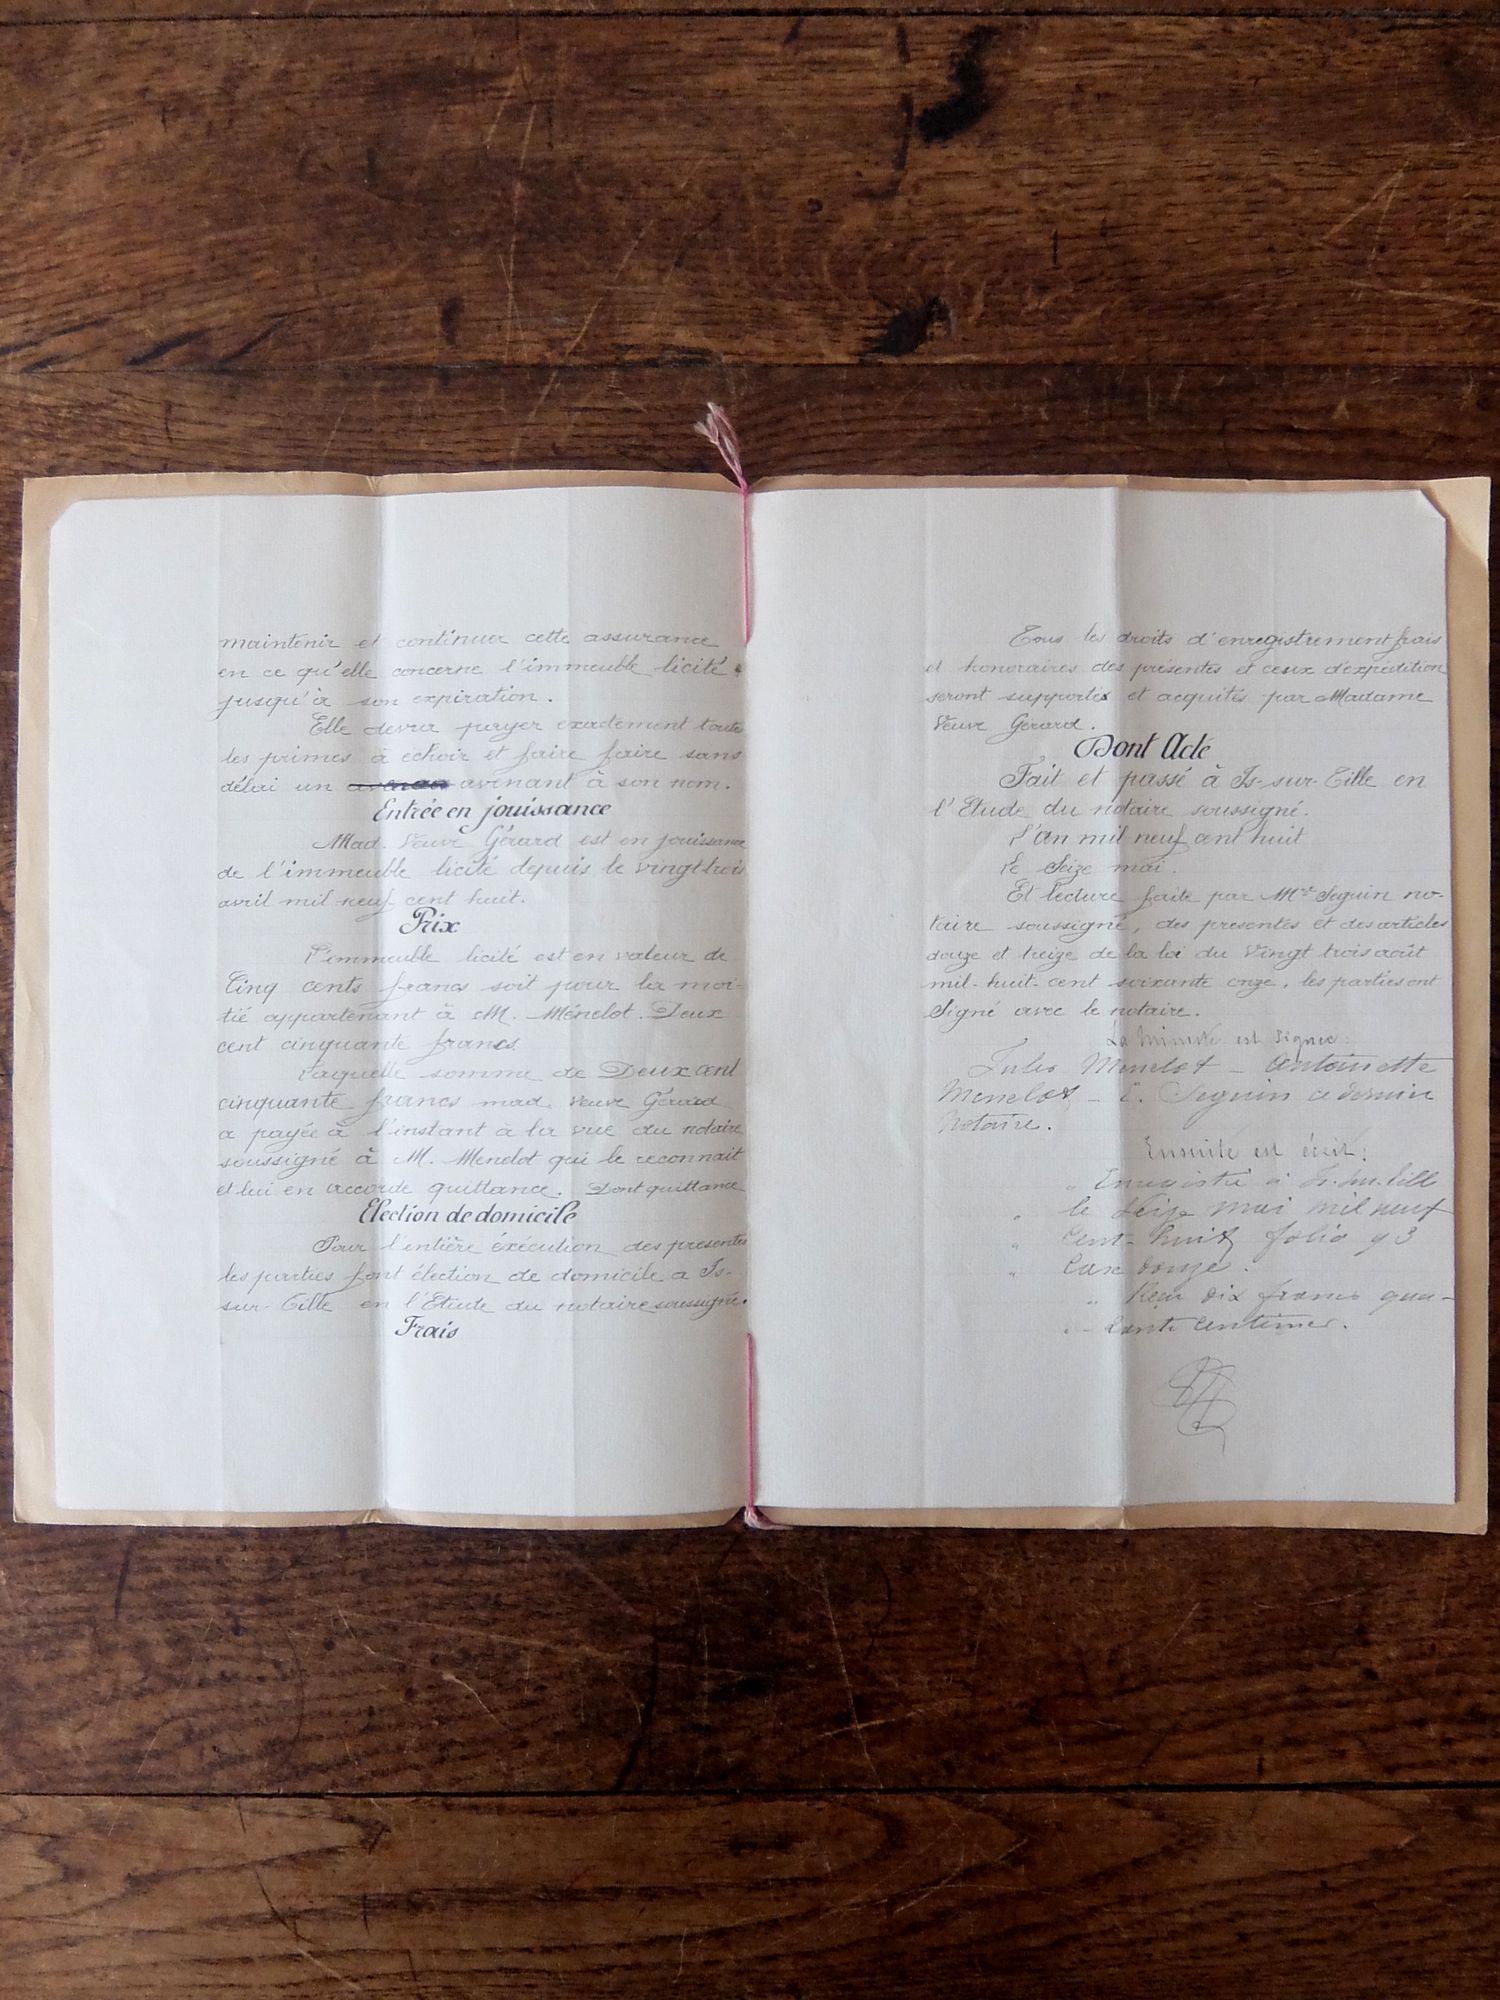 maintenir et continuer cette assurance
en ce qu'elle concerne l'immeuble licité
jusqu'à son expiration.
Elle devra payer exactement toutes
les primes à échoir et faire faire sans
délai un avenant à son nom.
Entrée en jouissance
Mad. Veuve Gérard est en jouissance
de l'immeuble licité depuis le vingt-trois
avril mil neuf cent huit.
Prix
L'immeuble licité est en valeur de
Cinq cents francs soit pour la moi-
tié appartenant à M. Ménelot. Deux
cent cinquante francs
Laquelle somme de Deux cent
cinquante francs mad. Veuve Gérard
a payée à l'instant à la vue du notaire
soussigné à M. Menelot qui le reconnait
et lui en accorde quittance. Dont quittance
Election de domicile
Pour l'entière éxécution des presentes
les parties font élection de domicile a Is-
sur-Tille en l'Etude du notaire soussigné.
Frais
Tous les droits d'enregistrement frais
et honoraires des présentes et ceux d'expédition
seront supportés et acquités par Madame
Veuve Gérard.
Dont Acte
Fait et passé à Is-sur-Tille en
l'Etude du notaire soussigné.
L'an mil neuf cent huit
Le Seize mai.
Et lecture faite par Me Seguin no-
taire soussigné, des presentes et des articles
douze et treize de la loi du Vingt trois août
mil-huit-cent soixante onze, les parties ont
Signé avec le notaire.
La Minute est signée:
Jules Menelot - Antoinette
Menelot - E. Seguin ce dernier
Notaire.
Ensuite est écrit:
" Enregistré à Is-sur-Tille
" le Seize mai mil neuf
" Cent-huit folio 93
" Case douze.
" Reçu dix francs qua-
" rante centimes.